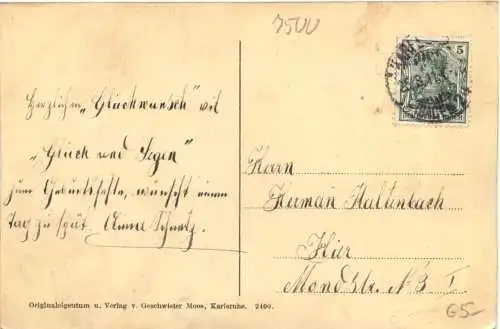 7500
5
Herzlichen „Glückwunsch" und
„Glück und Segen"
zum Geburtsfeste, wünscht einen
Tag zu spät. Anna
Herrn
Herman Kaltenbach
Hier
Mondstr. No 3 I
Originaleigentum u. Verlag v. Geschwister Moos, Karlsruhe. 2400.
G5-